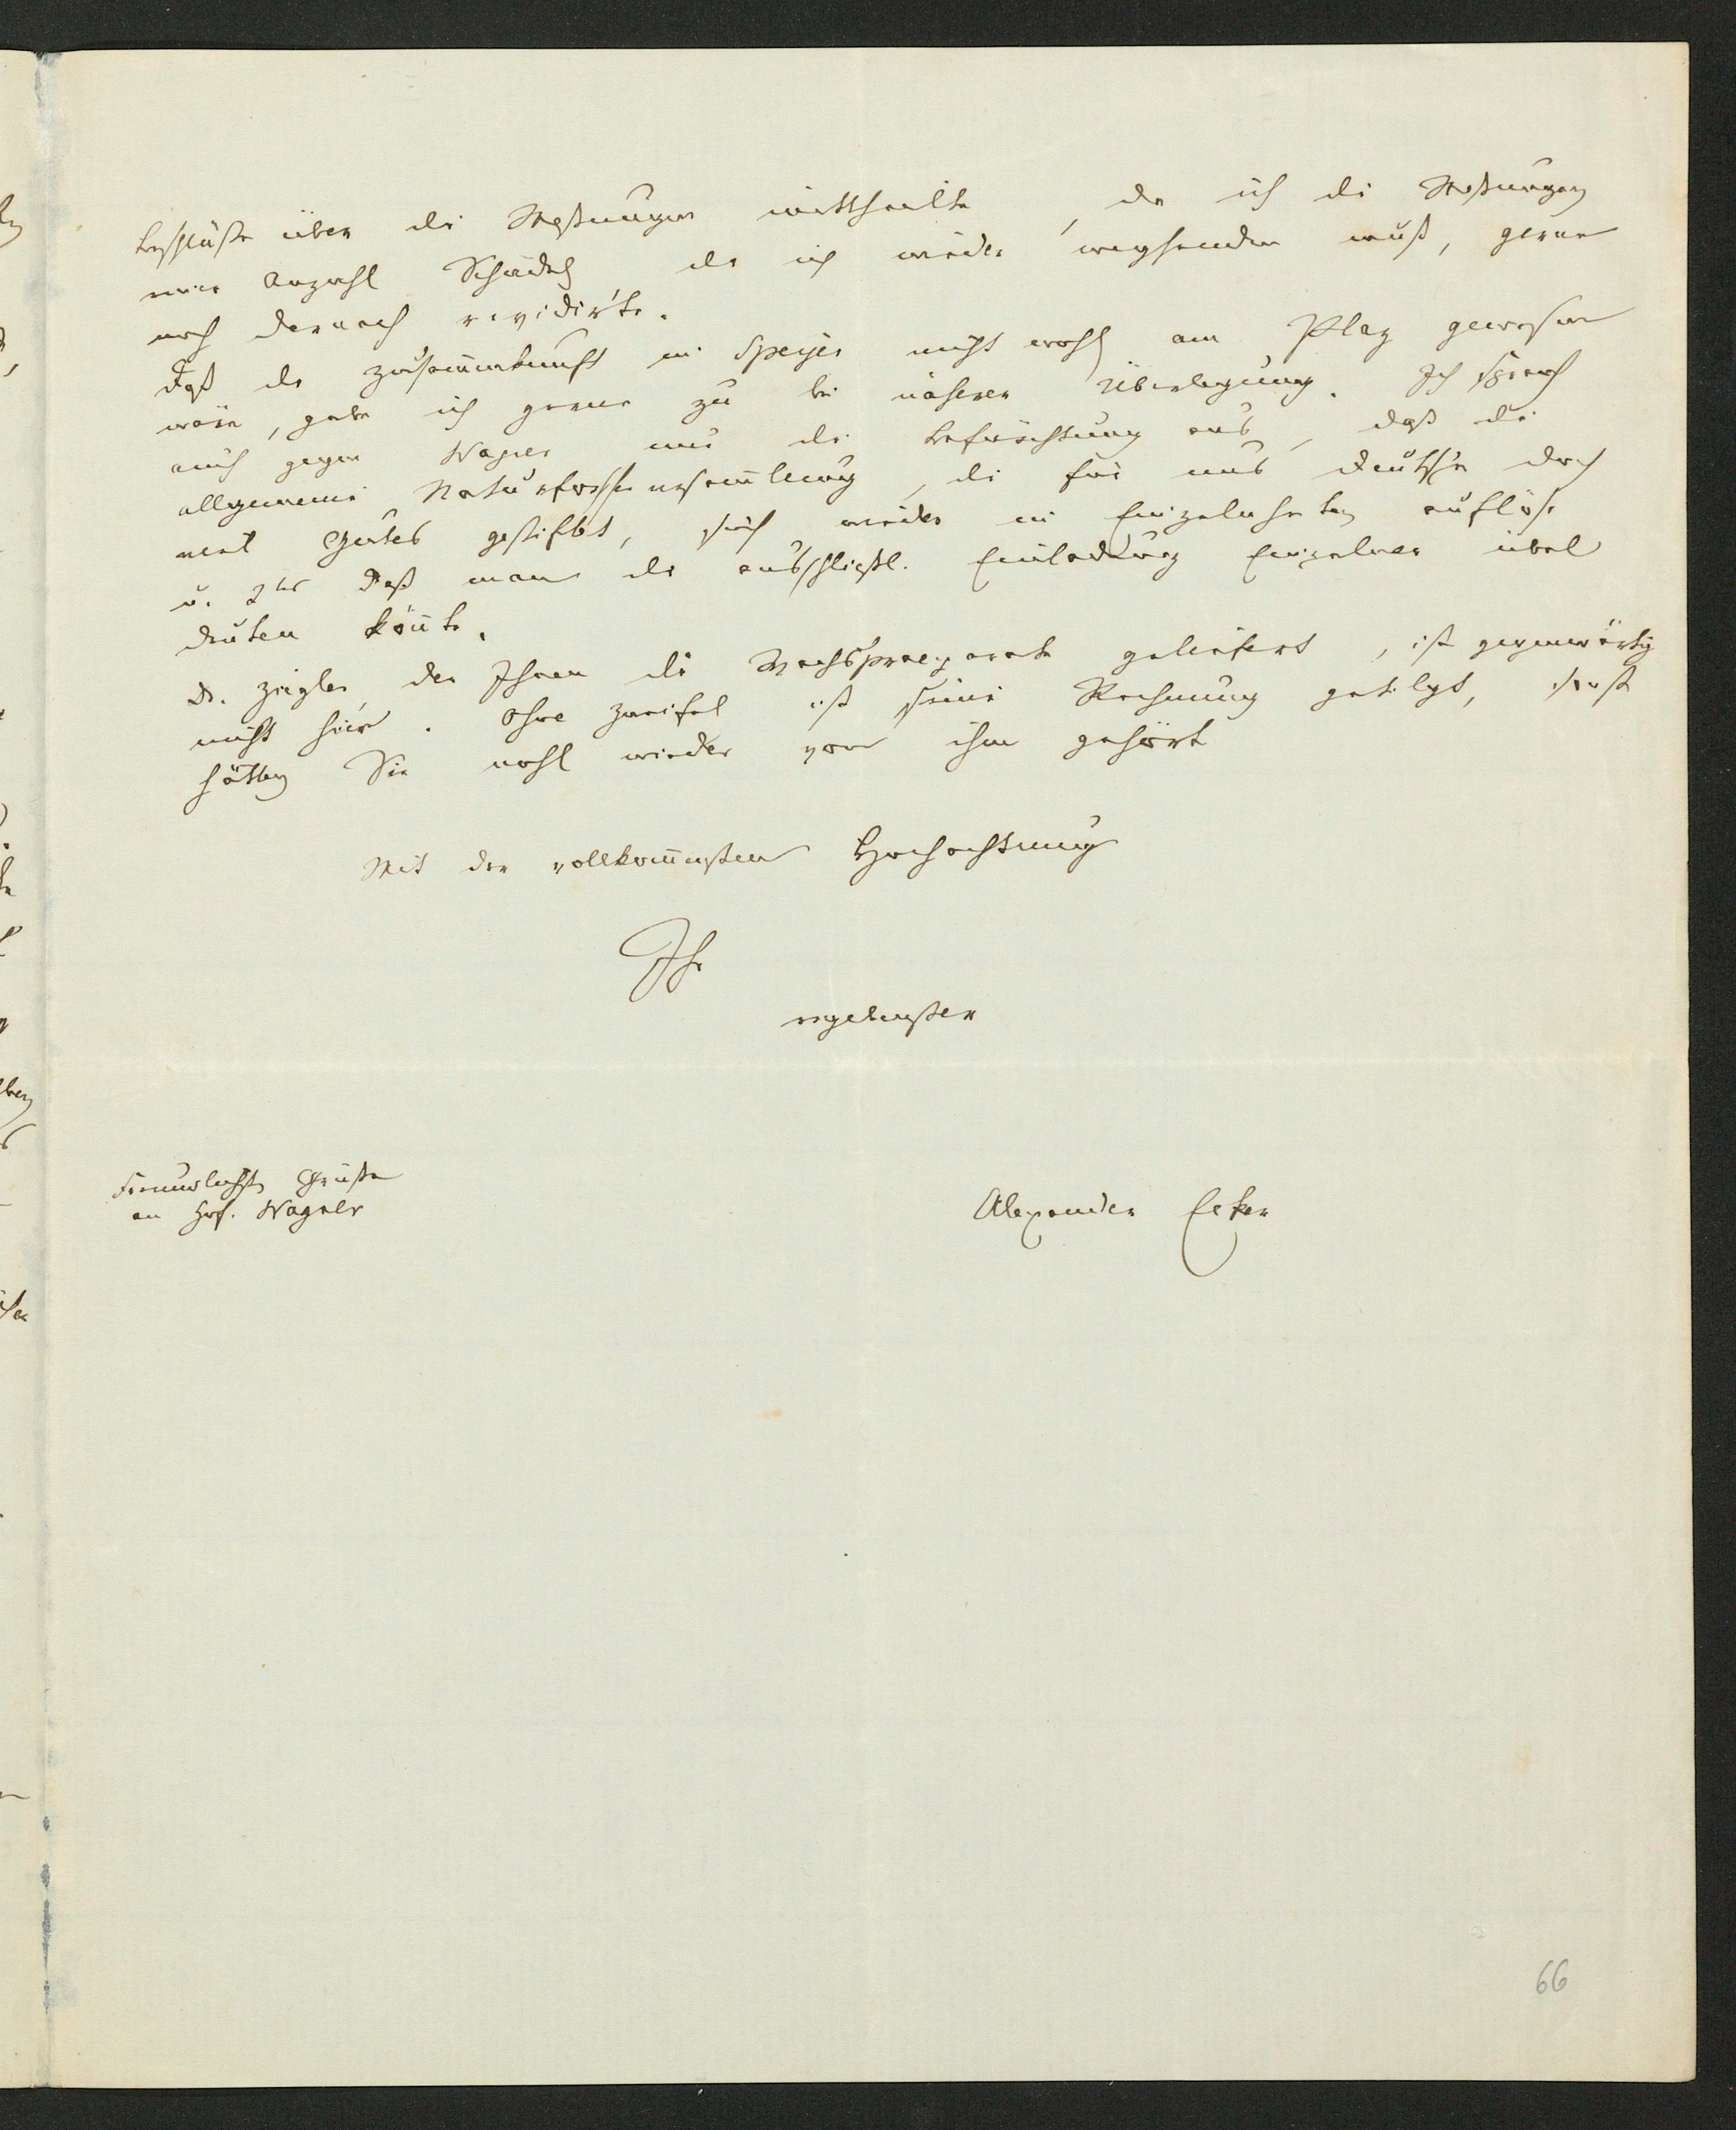 Beschlüße über die Meßungen mittheilte, da ich die Meßungen
einer Anzahl Schädel die ich wieder wegsenden muß, gerne
noch darnach revidirte.
Daß die Zusam̅enkunft in Speyer nicht wohl am Plaz gewesen
wäre, gebe ich gerne zu bei näherer Überlegung. Ich sprach
auch gegen Wagner nur die Befürchtung aus, daß die
allgemeine Naturforscherversam̅lung, die für uns Deutsche doch
viel Gutes gestiftet, sich wieder in Einzelnheiten auflöse
u. 2tens daß man die ausschließl. Einladung Einzelner übel
deuten kön̅te.
Dr. Ziegler, der Ihnen die Wachspraeparate geliefert, ist gegenwärtig
nicht hier. Ohne Zweifel ist seine Rechnung getilgt, sonst
hätten Sie wohl wieder von ihm gehört
Mit der vollkom̅ensten Hochachtung
Ihr
ergebenster
Freundlichste Grüße
an Hof. Wagner
Alexander Ecker
66